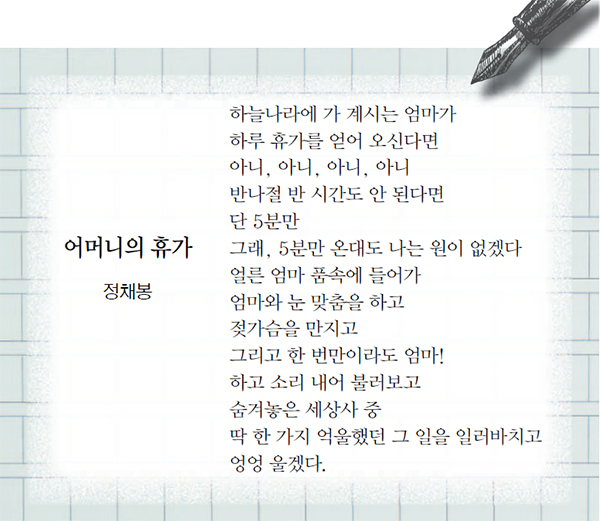 어머니의 휴가
정채봉
하늘나라에 가 계시는 엄마가
하루 휴가를 얻어 오신다면
아니, 아니, 아니, 아니
반나절 반 시간도 안 된다면
단 5분만
그래, 5분만 온대도 나는 원이 없겠다
얼른 엄마 품속에 들어가
엄마와 눈 맞춤을 하고
젖가슴을 만지고
그리고 한 번만이라도 엄마!
하고 소리 내어 불러보고
숨겨놓은 세상사 중
딱 한 가지 억울했던 그 일을 일러바치고
엉엉 울겠다.